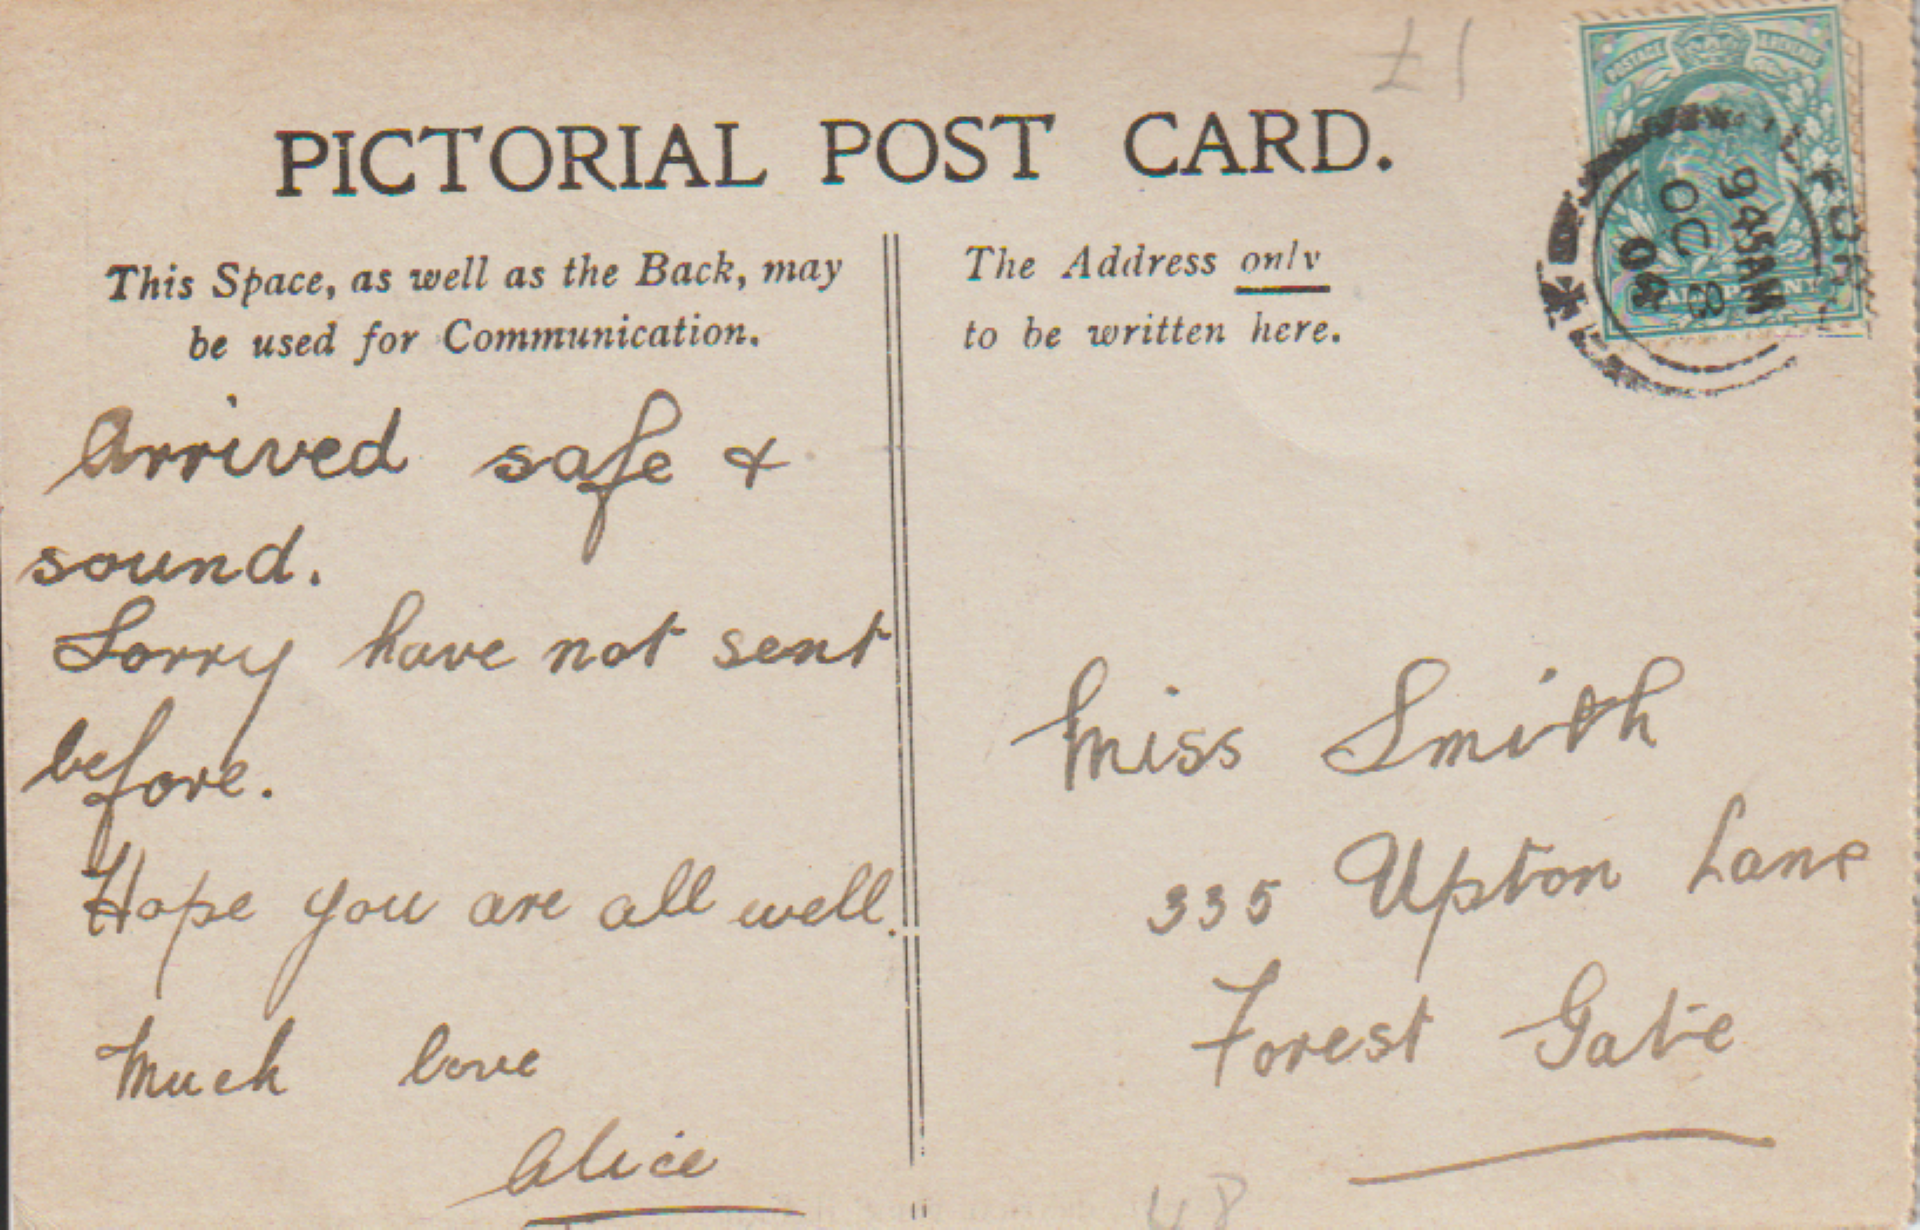 £1
PICTORIAL POST CARD.
This Space, as well as the Back, may
be used for Communication.
Arrived safe &
sound.
Sorry have not sent
before.
Hope you are all well.
Much love
Alice
The Address only
to be written here.
POSTAGE REVENUE
9 45 AM
OC 8
04
Miss Smith
335 Upton Lane
Forest Gate
48